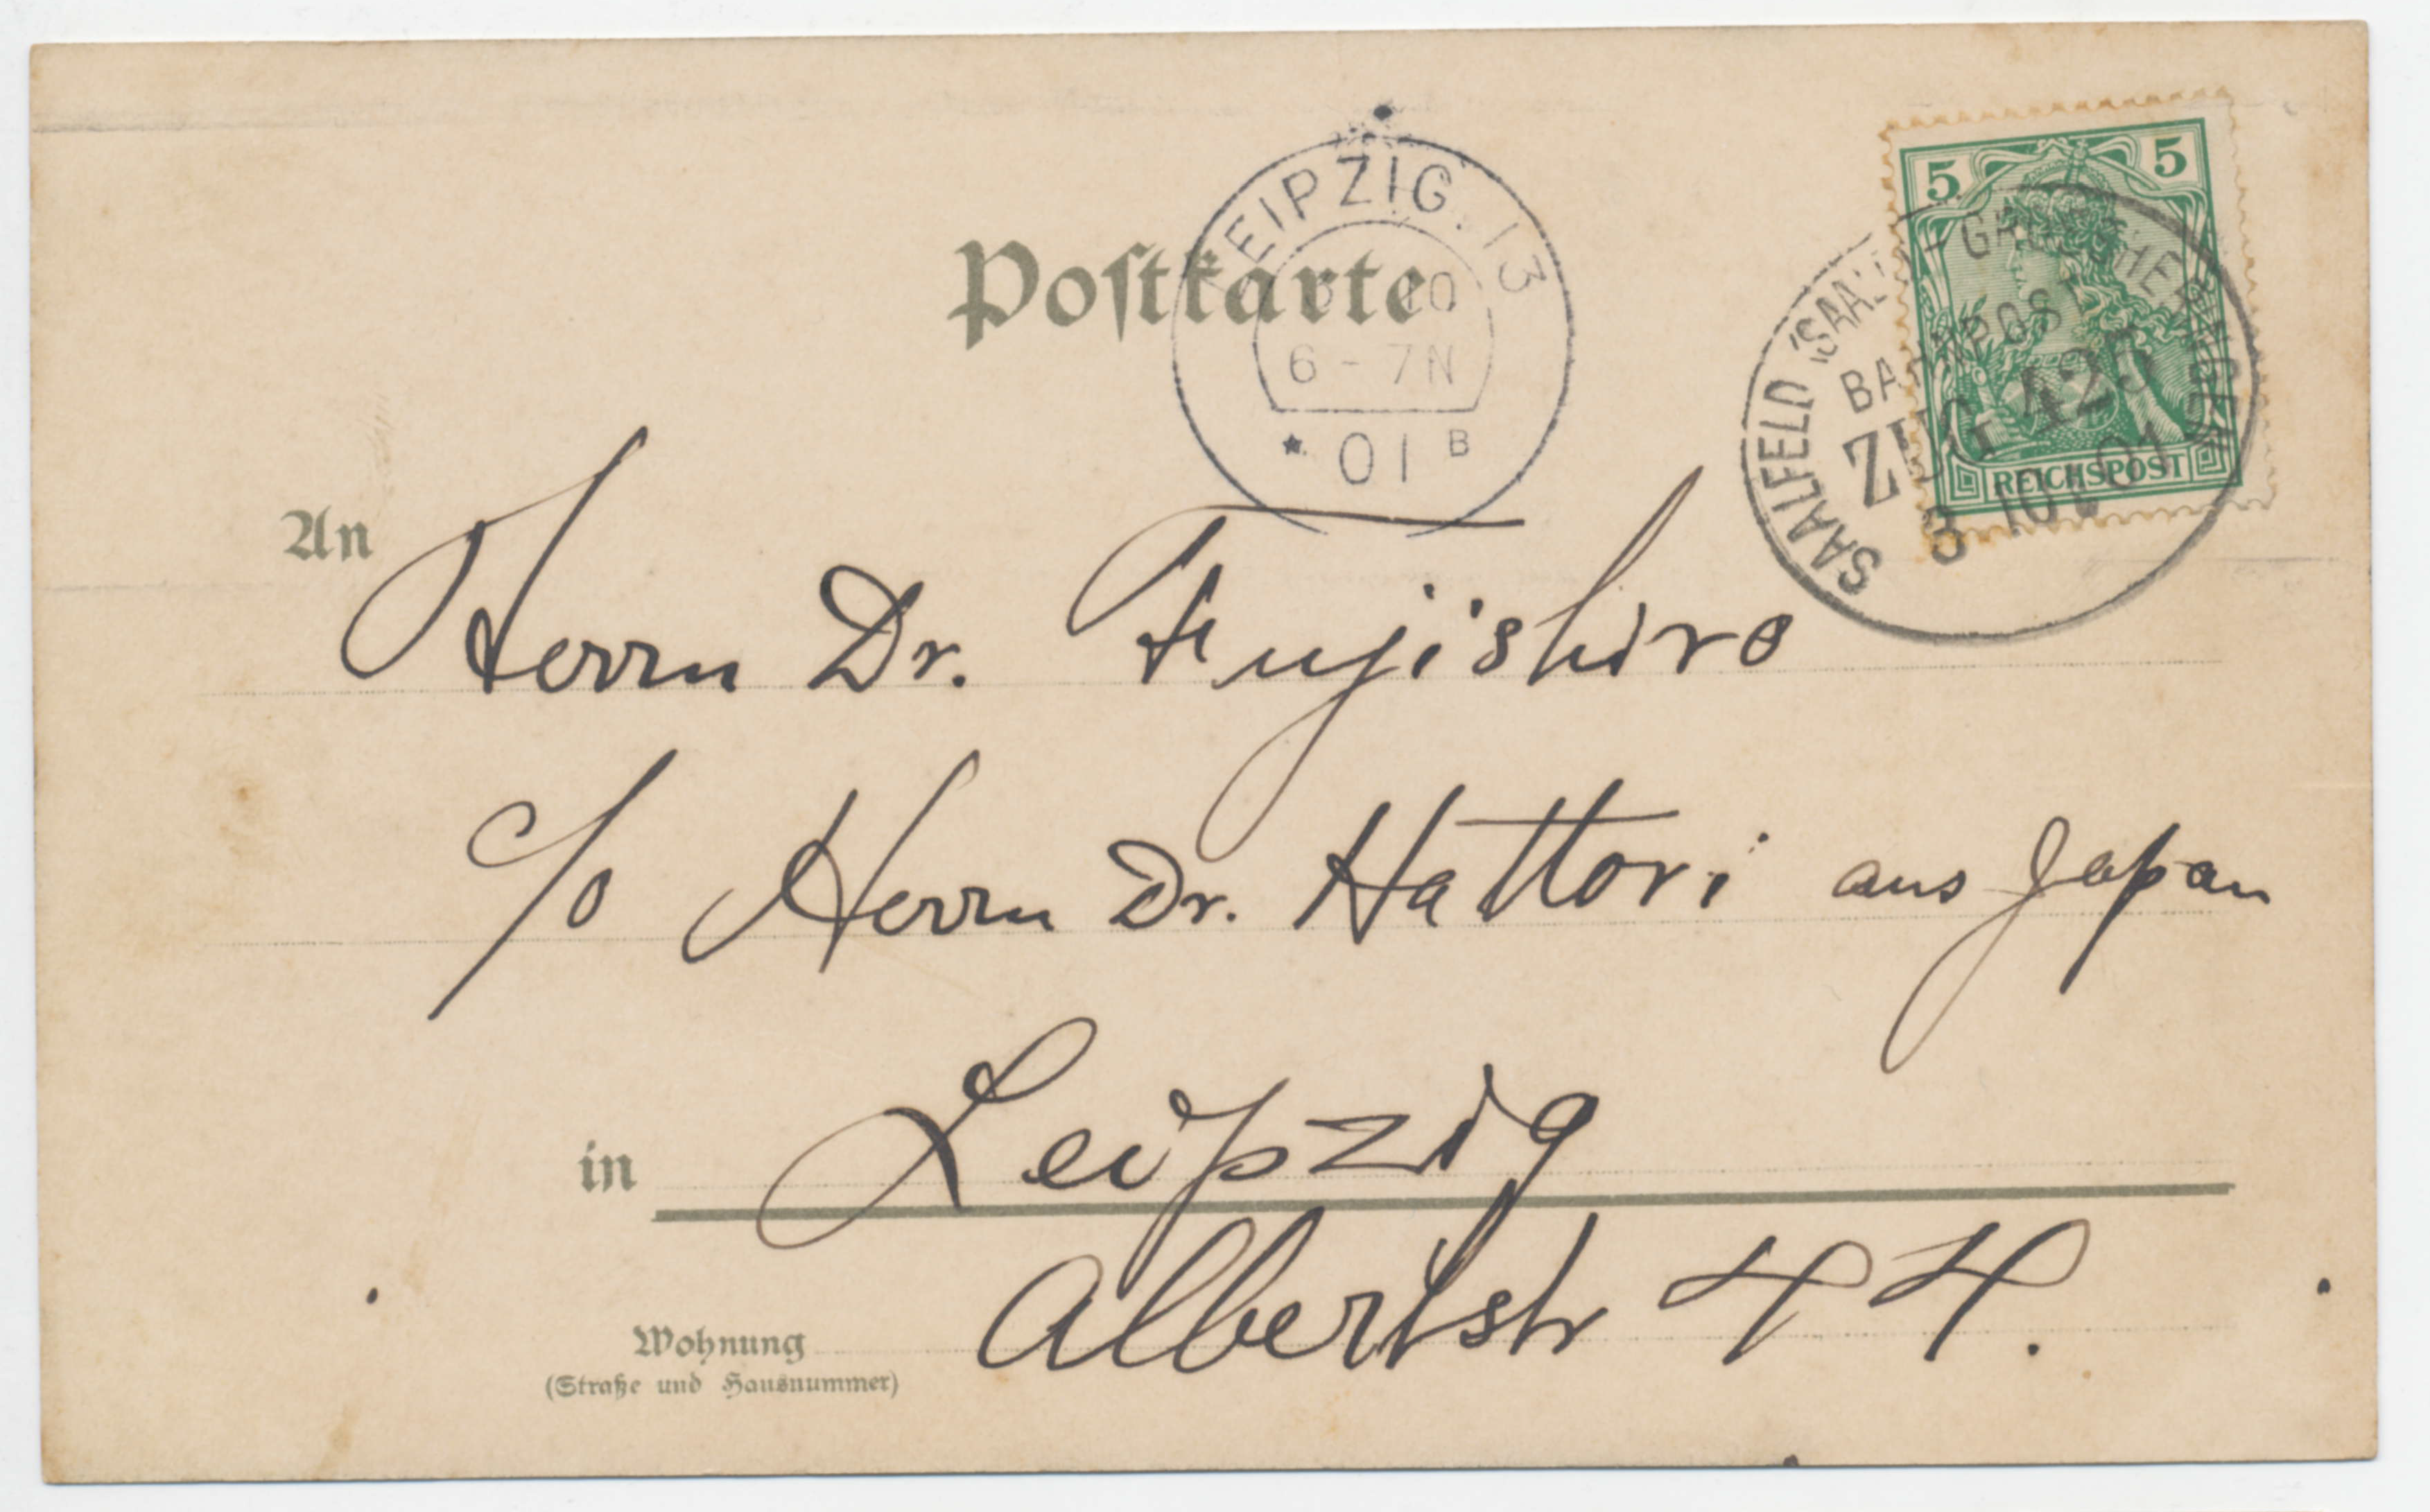 Postkarte
LEIPZIG. 13
10
6 - 7 N
* 01 B
5 5
REICHSPOST
SAALFELD (SAALE)
BAHNPOST
ZUG 425
3 10 01
An
Herrn Dr. Fujishiro
c/o Herrn Dr. Hattori aus Japan
in Leipzig
Albertstr 44.
Wohnung
(Straße und Hausnummer)